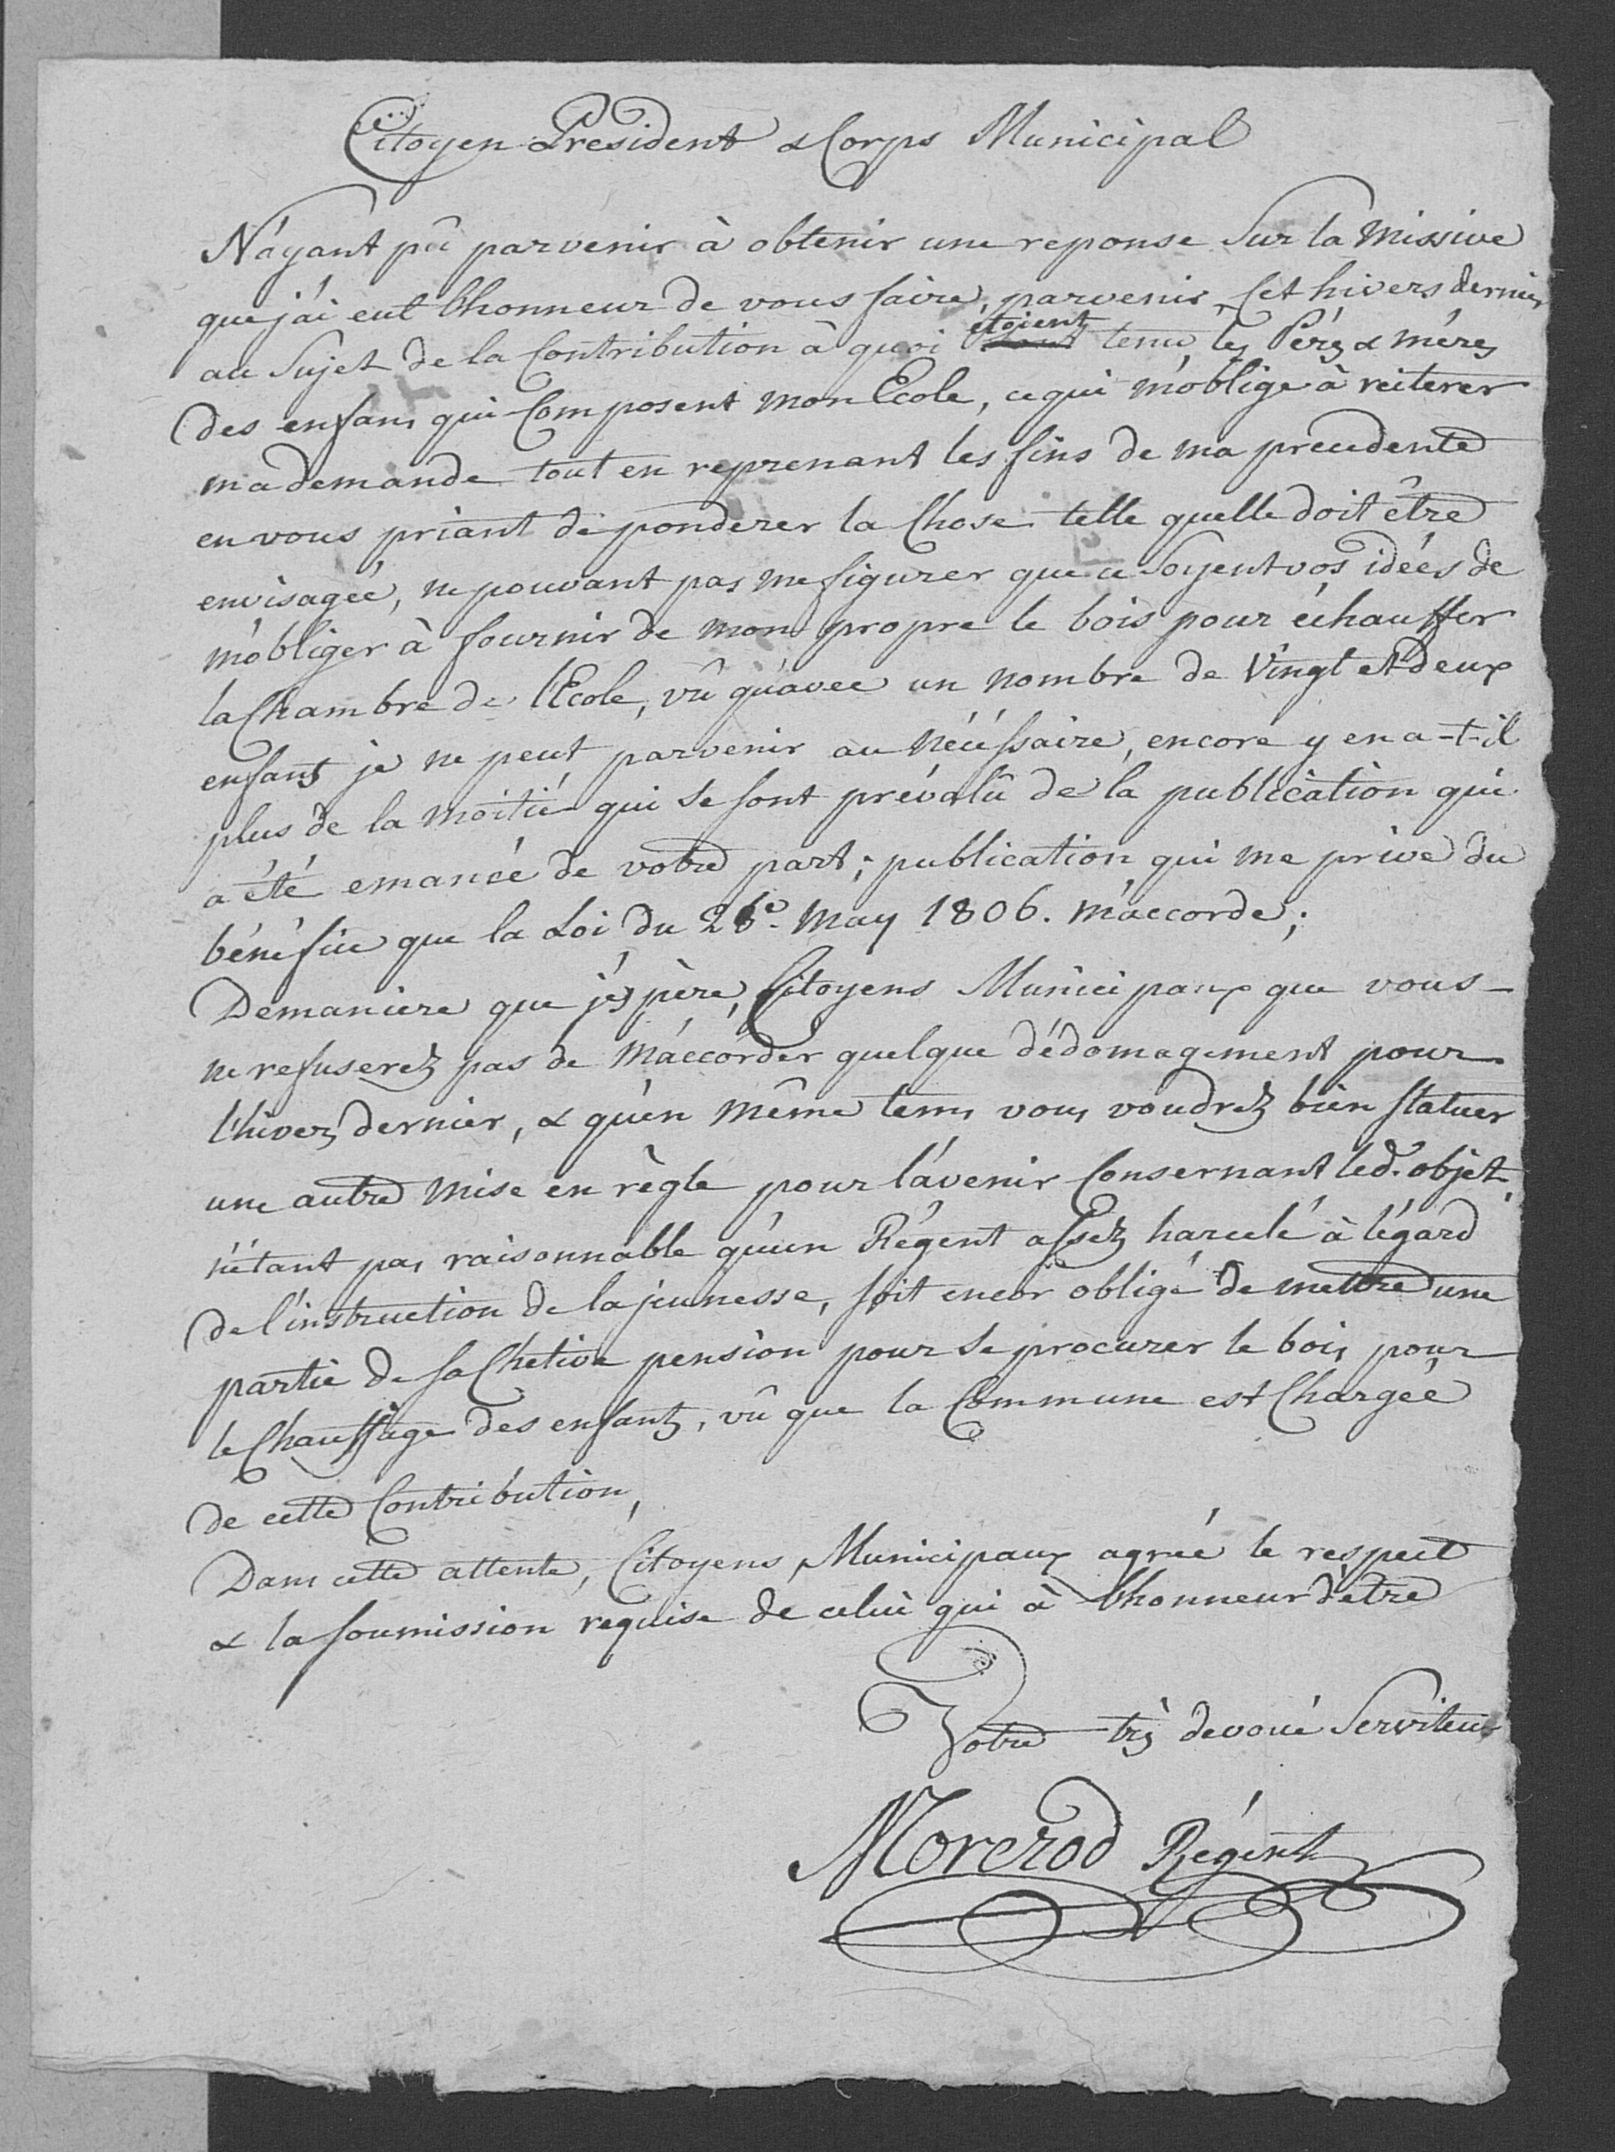 Citoyen President & Corps Municipal
N'ayant pû parvenir à obtenir une reponse Sur la Missive
que j'ai eut l'honneur de vous faire, parvenir, Cet hivers dernier
au Sujet de la Contribution à quoi étoient tenu les Pérs & méres
des enfans qui Composent mon Ecole, ce qui m'oblige à reiterer
ma demande tout en reprenant les fins de ma precedente
en vous priant de ponderer la Chose telle quelle doit être
envisagée, ne pouvant pas me figurer que ce Soyent vos idées de
m'obliger à fournir de mon propre le bois pour échauffer
la Chambre de l'Ecole, vû qu'avec un nombre de Vingt et deux
enfants je ne peut parvenir au nécéssaire, encore y en a-t-il
plus de la moitié qui se sont prévalû de la publication qui
a été emanée de votre part; publication qui me prive du
bénéfice que la Loi du 28e. May 1806. m'accorde;
De maniere que j'éspère, Citoyens Municipaux que vous
ne refuserez pas de m'accorder quelque dédomagement pour
l'hivers dernier, & qu'en même tems vous voudrez bien Statuer
une autre mise en règle pour l'avenir Consernant led.t objet,
n'étant pas raisonnable qu'un Régent assez harcelé à l'égard
de l'instruction de la jeunesse, soit encor obligé de mettre une
partie de sa Chetive pension pour se procurer le bois pour
le Chauffage des enfants, vû que la Commune est Chargée
de cette Contribution,
Dans cette attente, Citoyens Municipaux agréé le respect
& la soumission requise de celui qui à l'honneur d'etre
Votre très devoué Serviteur
Morerod Régent